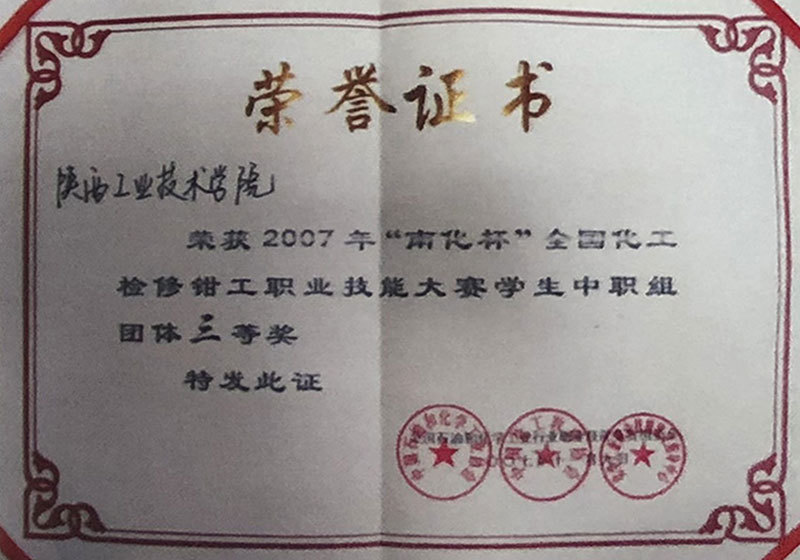 荣誉证书
陕西工业技术学院
荣获2007年“南化杯”全国化工
检修钳工职业技能大赛学生中职组
团体三等奖
特发此证